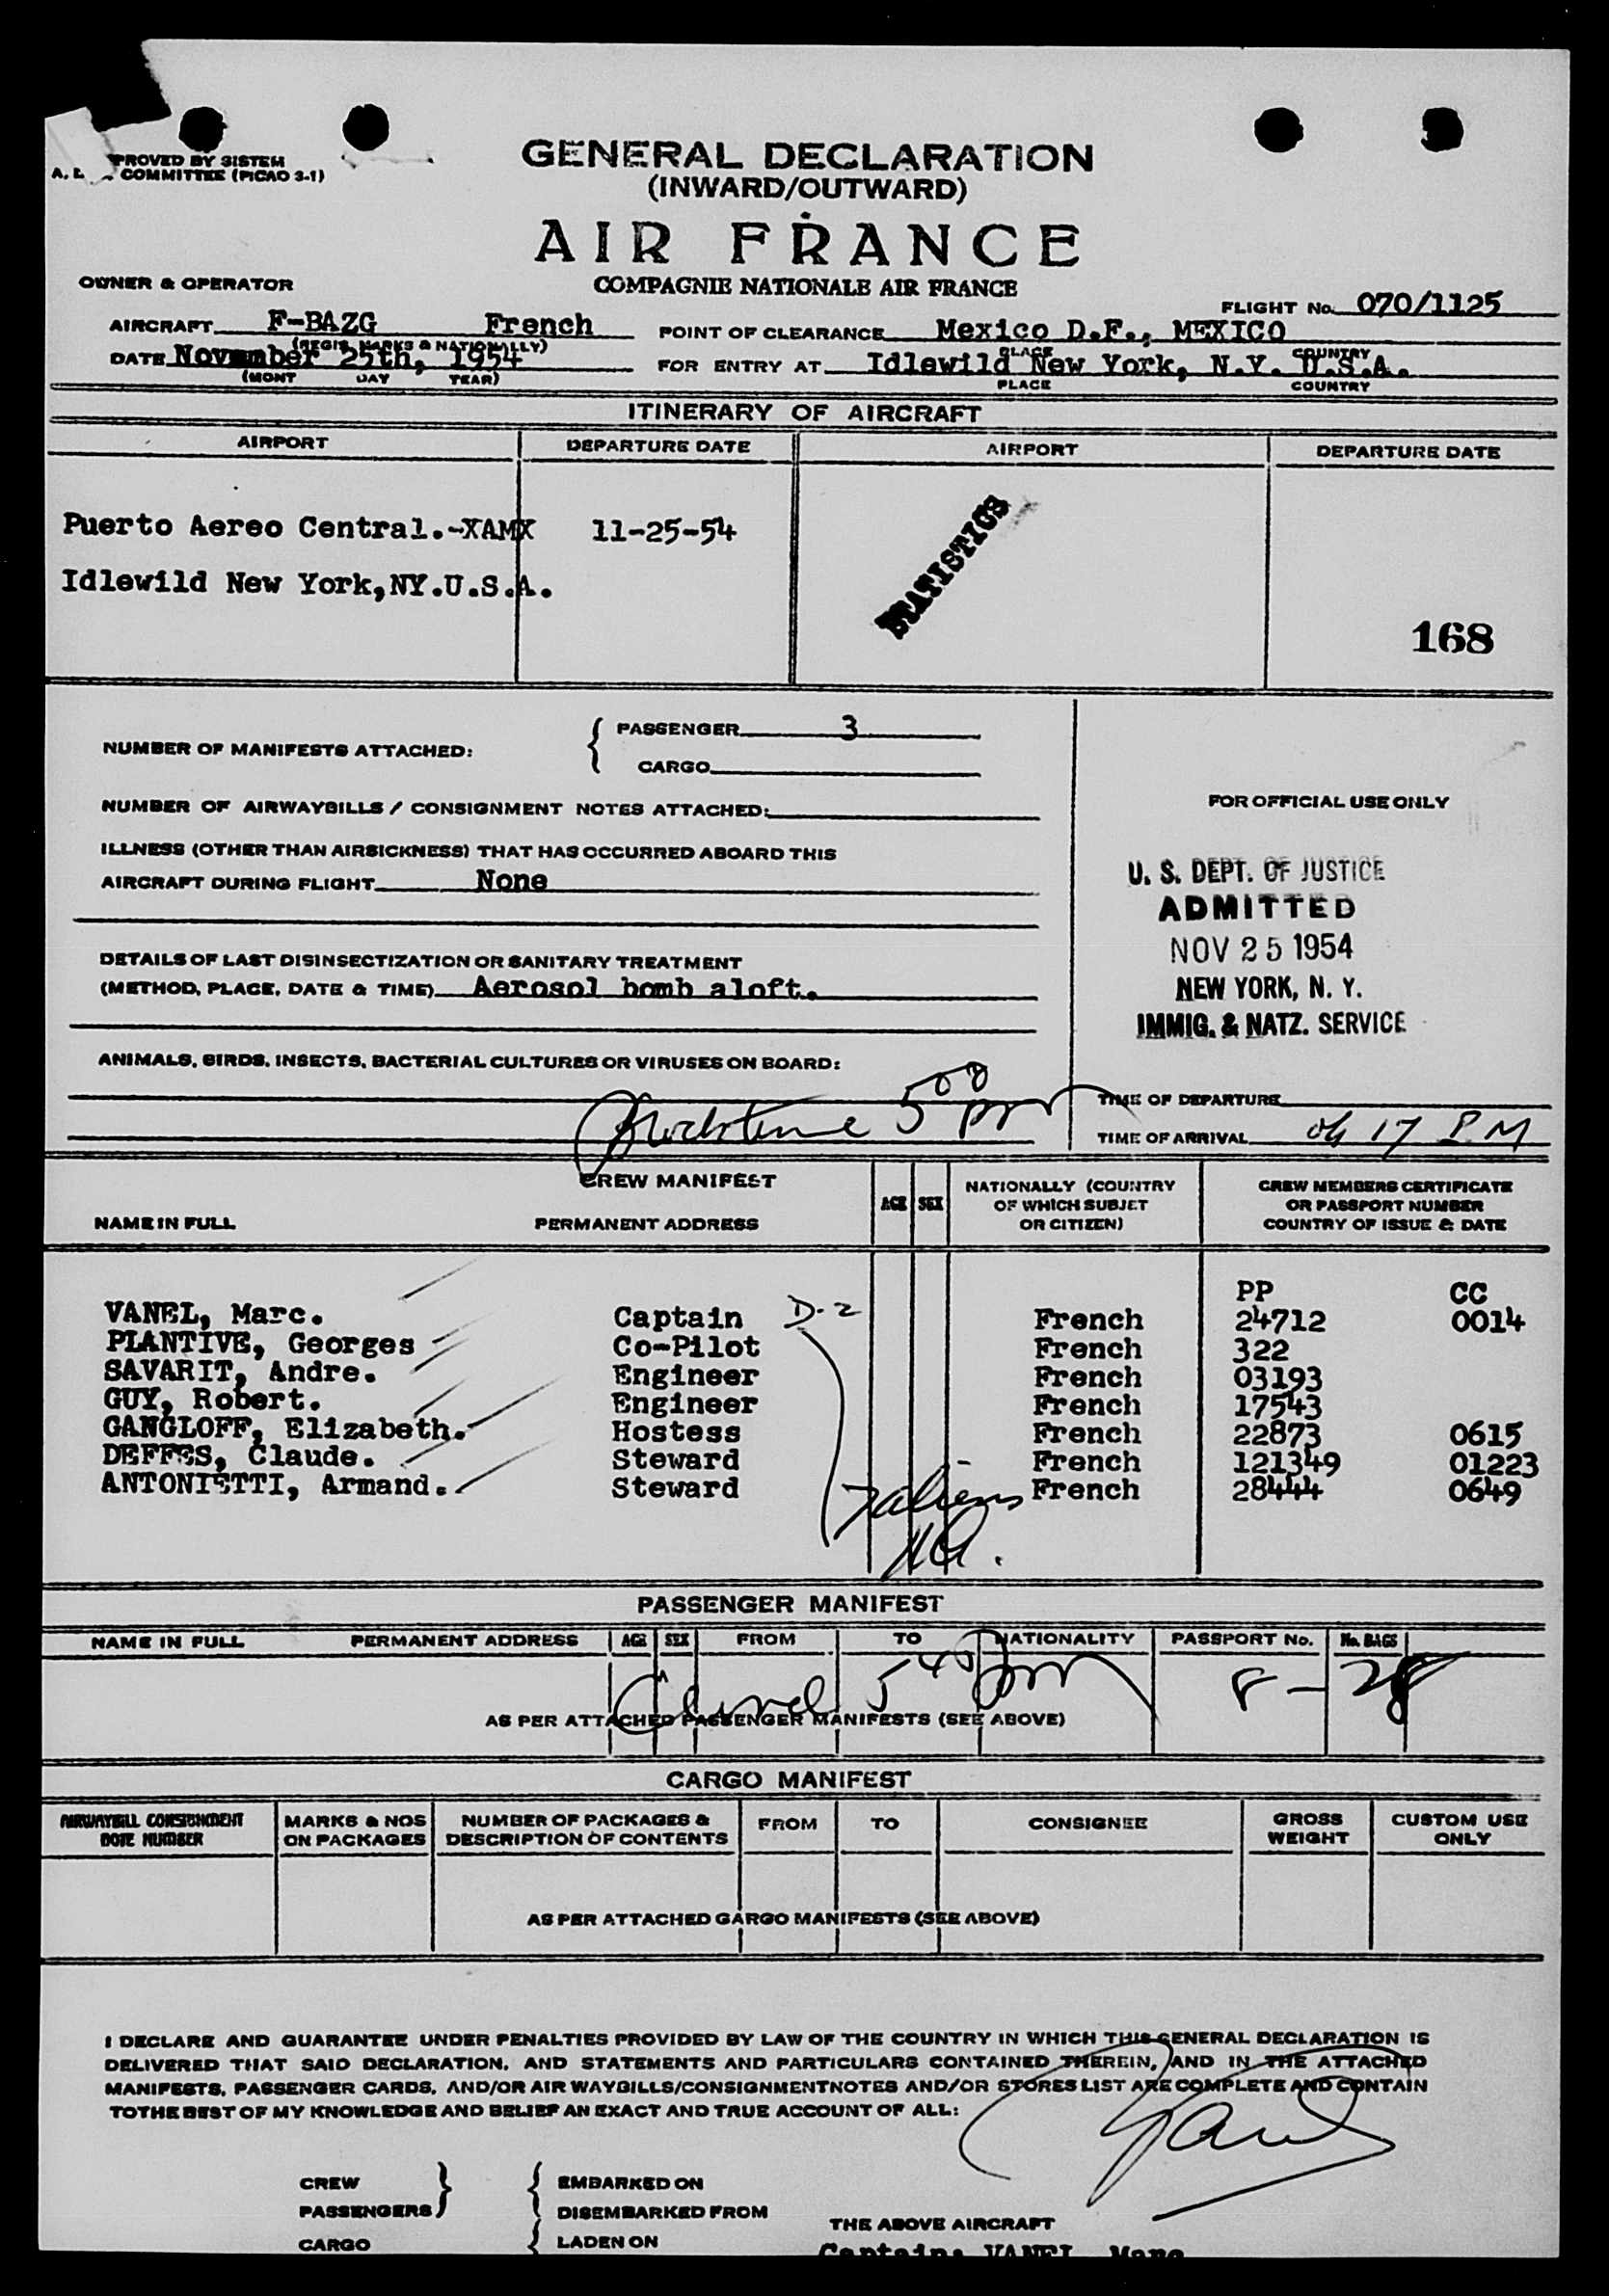 PROVED BY SISTEM
COMMITTEE (PICAO 3-1)
GENERAL DECLARATION
(INWARD/OUTWARD)
AIR FRANCE
COMPAGNIE NATIONALE AIR FRANCE
OWNER & OPERATOR
FLIGHT No. 070/1125
AIRCRAFT F-BAZG French
POINT OF CLEARANCE Mexico D.F., MEXICO
(REGIS. MARKS & NATIONALLY)
PLACE COUNTRY
DATE November 25th, 1954
FOR ENTRY AT Idlewild New York, N.Y. U.S.A.
(MONT DAY YEAR)
PLACE COUNTRY
ITINERARY OF AIRCRAFT
AIRPORT DEPARTURE DATE AIRPORT DEPARTURE DATE
Puerto Aereo Central.-XAMX 11-25-54
STATISTICS
Idlewild New York,NY.U.S.A.
168
NUMBER OF MANIFESTS ATTACHED:
PASSENGER 3
CARGO
NUMBER OF AIRWAYBILLS / CONSIGNMENT NOTES ATTACHED:
FOR OFFICIAL USE ONLY
ILLNESS (OTHER THAN AIRSICKNESS) THAT HAS OCCURRED ABOARD THIS
AIRCRAFT DURING FLIGHT None
U. S. DEPT. OF JUSTICE
ADMITTED
NOV 25 1954
NEW YORK, N. Y.
IMMIG. & NATZ. SERVICE
DETAILS OF LAST DISINSECTIZATION OR SANITARY TREATMENT
(METHOD, PLACE, DATE & TIME) Aerosol bomb aloft.
ANIMALS, BIRDS, INSECTS, BACTERIAL CULTURES OR VIRUSES ON BOARD:
5 00 pm
TIME OF DEPARTURE
TIME OF ARRIVAL 04 17 PM
CREW MANIFEST
NAME IN FULL PERMANENT ADDRESS AGE SEX
NATIONALLY (COUNTRY
OF WHICH SUBJET
OR CITIZEN)
CREW MEMBERS CERTIFICATE
OR PASSPORT NUMBER
COUNTRY OF ISSUE & DATE
PP CC
VANEL, Marc. Captain D-2 French 24712 0014
PLANTIVE, Georges Co-Pilot French 322
SAVARIT, Andre. Engineer French 03193
GUY, Robert. Engineer French 17543
GANGLOFF, Elizabeth. Hostess French 22873 0615
DEFFES, Claude. Steward French 121349 01223
ANTONIETTI, Armand. Steward French 28444 0649
7 aliens
PASSENGER MANIFEST
NAME IN FULL PERMANENT ADDRESS AGE SEX FROM TO NATIONALITY PASSPORT No. No. BAGS
5 40 pm 8 - 28
AS PER ATTACHED PASSENGER MANIFESTS (SEE ABOVE)
CARGO MANIFEST
AIRWAYBILL CONSIGNMENT
NOTE NUMBER
MARKS & NOS
ON PACKAGES
NUMBER OF PACKAGES &
DESCRIPTION OF CONTENTS
FROM TO CONSIGNEE
GROSS
WEIGHT
CUSTOM USE
ONLY
AS PER ATTACHED GARGO MANIFESTS (SEE ABOVE)
I DECLARE AND GUARANTEE UNDER PENALTIES PROVIDED BY LAW OF THE COUNTRY IN WHICH THIS GENERAL DECLARATION IS
DELIVERED THAT SAID DECLARATION, AND STATEMENTS AND PARTICULARS CONTAINED THEREIN, AND IN THE ATTACHED
MANIFESTS, PASSENGER CARDS, AND/OR AIR WAYBILLS/CONSIGNMENTNOTES AND/OR STORES LIST ARE COMPLETE AND CONTAIN
TOTHE BEST OF MY KNOWLEDGE AND BELIEF AN EXACT AND TRUE ACCOUNT OF ALL:
CREW
PASSENGERS
CARGO
EMBARKED ON
DISEMBARKED FROM
LADEN ON
THE ABOVE AIRCRAFT
Captain: VANEL Marc